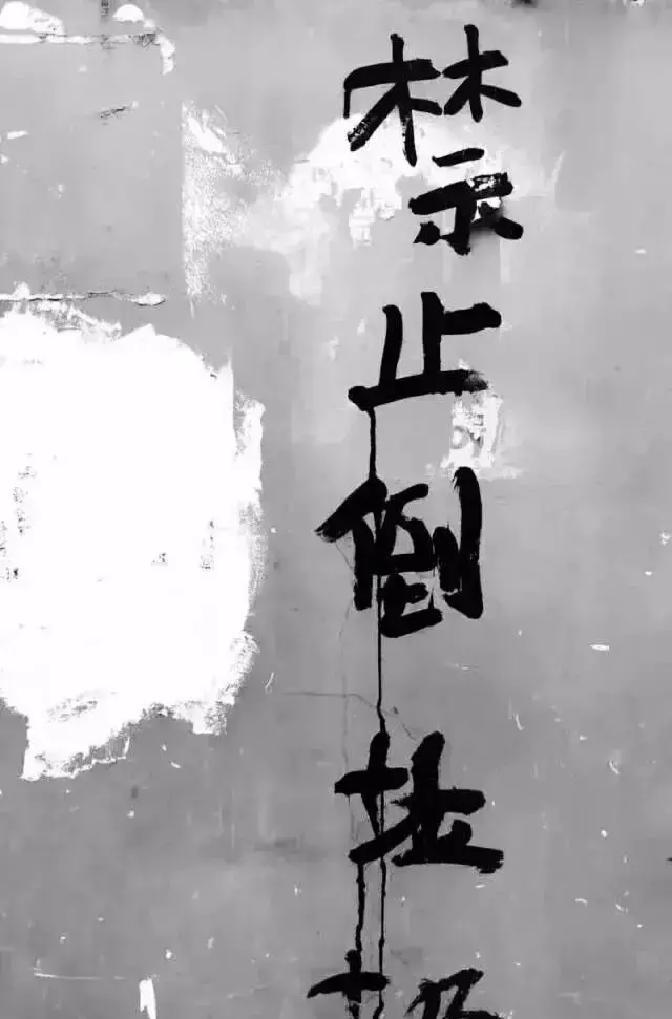 禁止倒垃圾